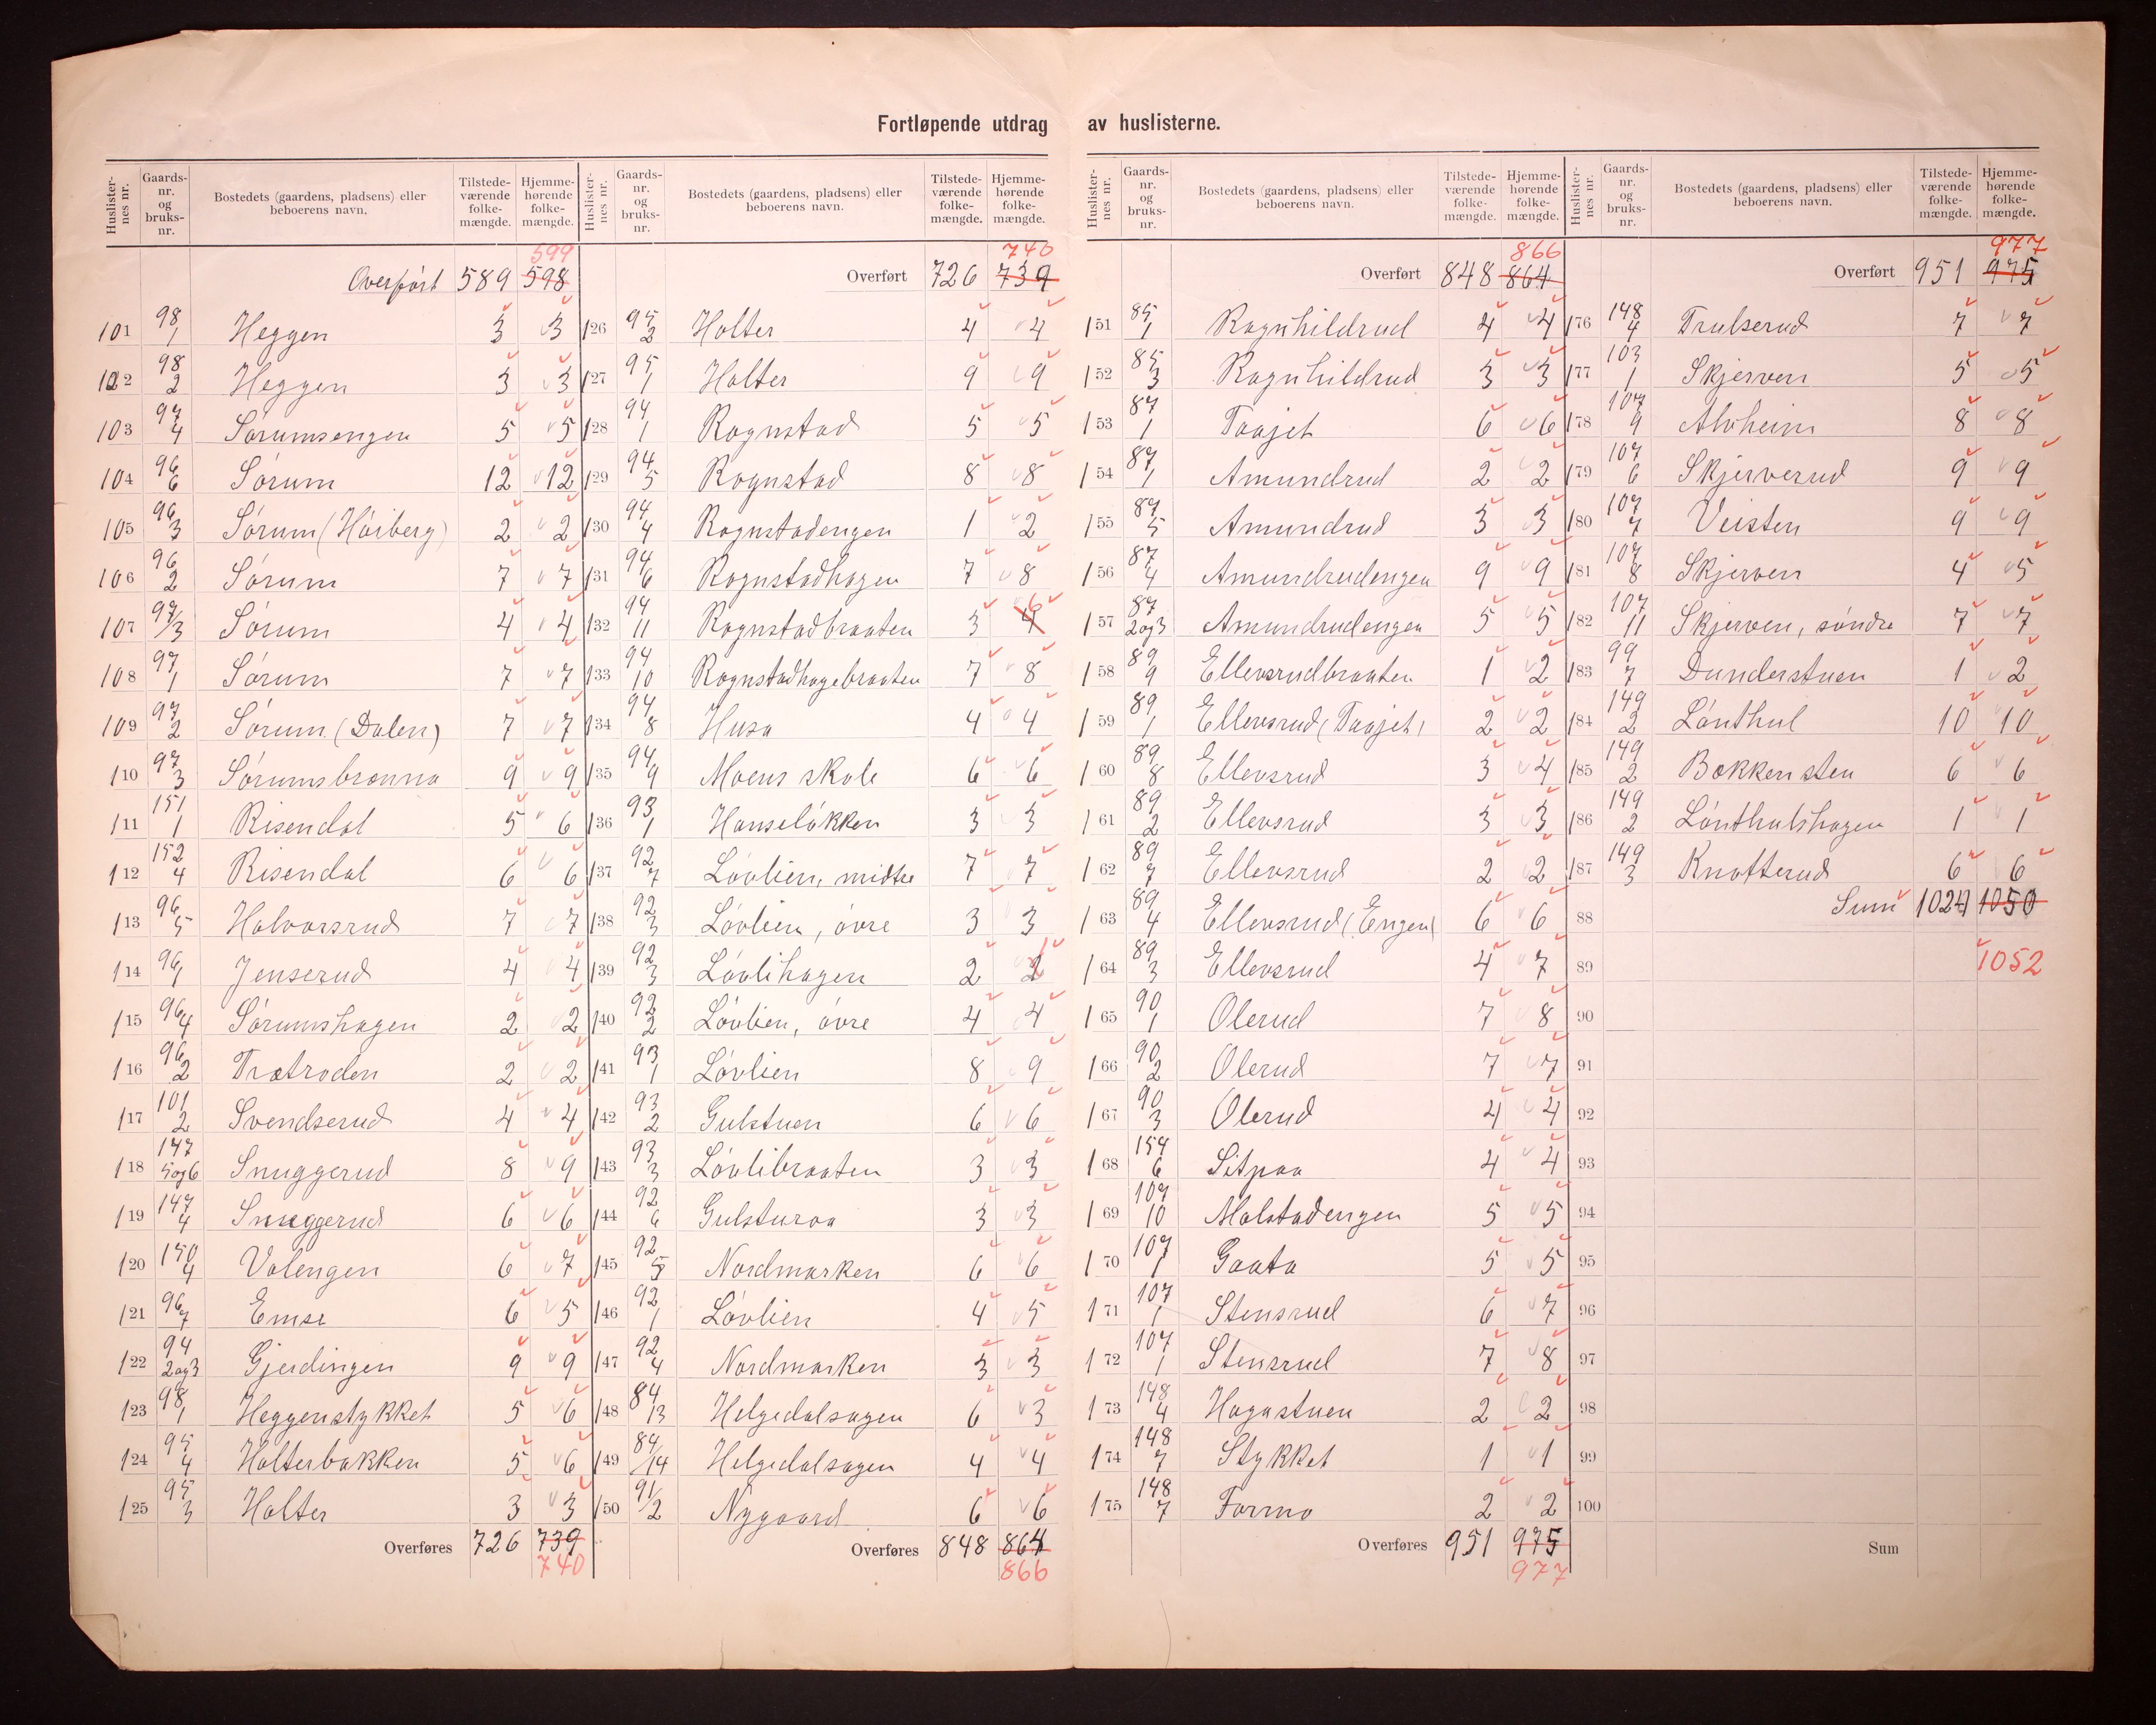 Fortløpende utdrag av huslisterne.
Huslisternes nr. Gaards-nr. og bruks-nr. Bostedets (gaardens, pladsens) eller beboerens navn. Tilstedeværende folkemængde. Hjemmehørende folkemængde.
599
Overført 589 598
101 98/1 Heggen 3 3
102 98/2 Heggen 3 3
103 97/4 Sørumsengen 5 5
104 96/6 Sørum 12 12
105 96/3 Sørum (Høiberg) 2 2
106 96/2 Sørum 7 7
107 97/3 Sørum 4 4
108 97/1 Sørum 7 7
109 97/2 Sørum (Dalen) 7 7
110 97/3 Sørumsbrønna 9 9
111 151/1 Risendal 5 6
112 152/4 Risendal 6 6
113 96/5 Halvorsrud 7 7
114 96/1 Jenserud 4 4
115 96/4 Sørumshagen 2 2
116 96/2 Trætroden 2 2
117 101/2 Svendserud 4 4
118 147/5 og 6 Snuggerud 8 9
119 147/4 Snuggerud 6 6
120 150/4 Volengen 6 7
121 96/7 Emse 6 5
122 94/2 og 3 Gjerdingen 9 9
123 98/1 Heggenstykket 5 6
124 95/4 Holterbakken 5 6
125 95/3 Holter 3 3
Overføres 726 739
740
Huslisternes nr. Gaards-nr. og bruks-nr. Bostedets (gaardens, pladsens) eller beboerens navn. Tilstedeværende folkemængde. Hjemmehørende folkemængde.
740
Overført 726 739
126 95/2 Holter 4 4
127 95/1 Holter 9 9
128 94/1 Rognstad 5 5
129 94/5 Rognstad 8 8
130 94/4 Rognstadengen 1 2
131 94/6 Rognstadhagen 7 8
132 94/11 Rognstadbraaten 3 4 6
133 94/10 Rognstadhagebraaten 7 8
134 94/8 Husa 4 4
135 94/9 Moens skole 6 6
136 93/1 Hanseløkken 3 3
137 92/7 Løvlien, midtre 7 7
138 92/3 Løvlien, øvre 3 3
139 92/3 Løvlihagen 2 2 1
140 92/2 Løvlien, øvre 4 4
141 93/1 Løvlien 8 9
142 93/2 Gulstuen 6 6
143 93/3 Løvlibraaten 3 3
144 92/6 Gulsturoa 3 3
145 92/5 Nordmarken 6 6
146 92/1 Løvlien 4 5
147 92/4 Nordmarken 3 3
148 84/13 Helgedalsagen 6 3
149 84/14 Helgedalsagen 4 4
150 91/2 Nygaard 6 6
Overføres 848 864
866
Huslisternes nr. Gaards-nr. og bruks-nr. Bostedets (gaardens, pladsens) eller beboerens navn. Tilstedeværende folkemængde. Hjemmehørende folkemængde.
866
Overført 848 864
151 85/1 Ragnhildrud 4 4
152 85/3 Ragnhildrud 3 3
153 87/1 Taajet 6 6
154 87/1 Amundrud 2 2
155 87/5 Amundrud 3 3
156 87/4 Amundrudengen 9 9
157 87/2 og 3 Amundrudengen 5 5
158 89/9 Ellevsrudbraaten 1 2
159 89/1 Ellevsrud (Taajet) 2 2
160 89/8 Ellevsrud 3 4
161 89/2 Ellevsrud 3 3
162 89/7 Ellevsrud 2 2
163 89/4 Ellevsrud (Engen) 6 6
164 89/3 Ellevsrud 4 7
165 90/1 Olerud 7 8
166 90/2 Olerud 7 7
167 90/3 Olerud 4 4
168 154/6 Sitpaa 4 4
169 107/10 Malstadengen 5 5
170 107/1 Gaata 5 5
171 107/1 Stensrud 6 7
172 107/1 Stensrud 7 8
173 148/4 Hagastuen 2 2
174 148/7 Stykket 1 1
175 148/7 Formo 2 2
Overføres 951 975
977
Huslisternes nr. Gaards-nr. og bruks-nr. Bostedets (gaardens, pladsens) eller beboerens navn. Tilstedeværende folkemængde. Hjemmehørende folkemængde.
977
Overført 951 975
176 148/4 Trulserud 7 7
177 103/1 Skjerven 5 5
178 107/9 Alvheim 8 8
179 107/6 Skjerverud 9 9
180 107/7 Veisten 9 9
181 107/8 Skjerven 4 5
182 107/11 Skjerven, søndre 7 7
183 99/7 Dunderstuen 1 2
184 149/2 Lønthul 10 10
185 149/2 Bakkensten 6 6
186 149/2 Lønthulshagen 1 1
187 149/3 Knatterud 6 6
88 Sum 1024 1050
89 1052
90
91
92
93
94
95
96
97
98
99
100
Sum